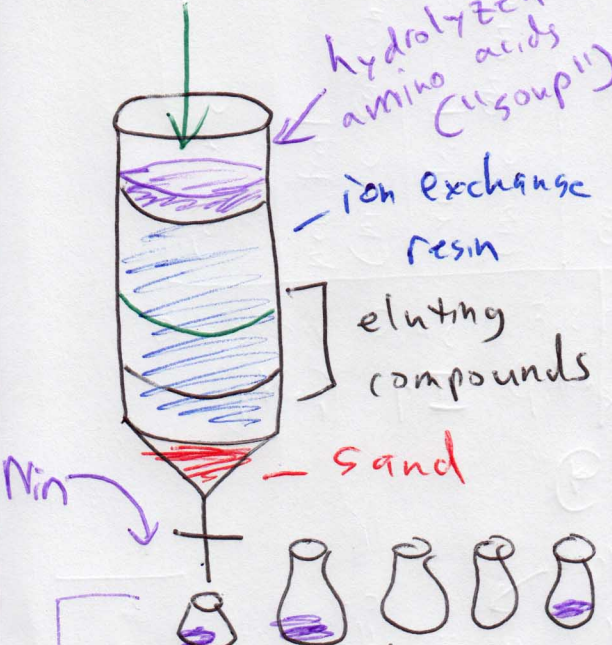 hydrolyzed
amino acids
("soup")
ion exchange
resin
eluting
compounds
sand
Nin